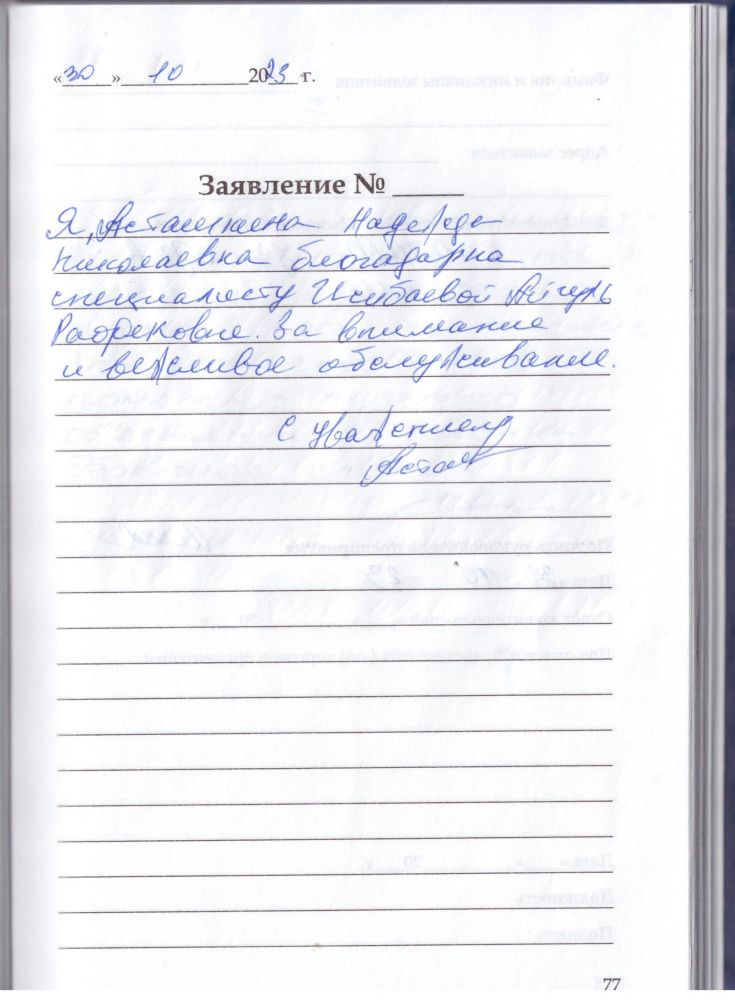 «30» 10 2023 г.
Заявление №
Я, Асташкина Надежда
Николаевна благодарна
специалисту Исинбаевой Айгуль
Рафековне. За внимание
и вежливое обслуживание.
С уважением
77